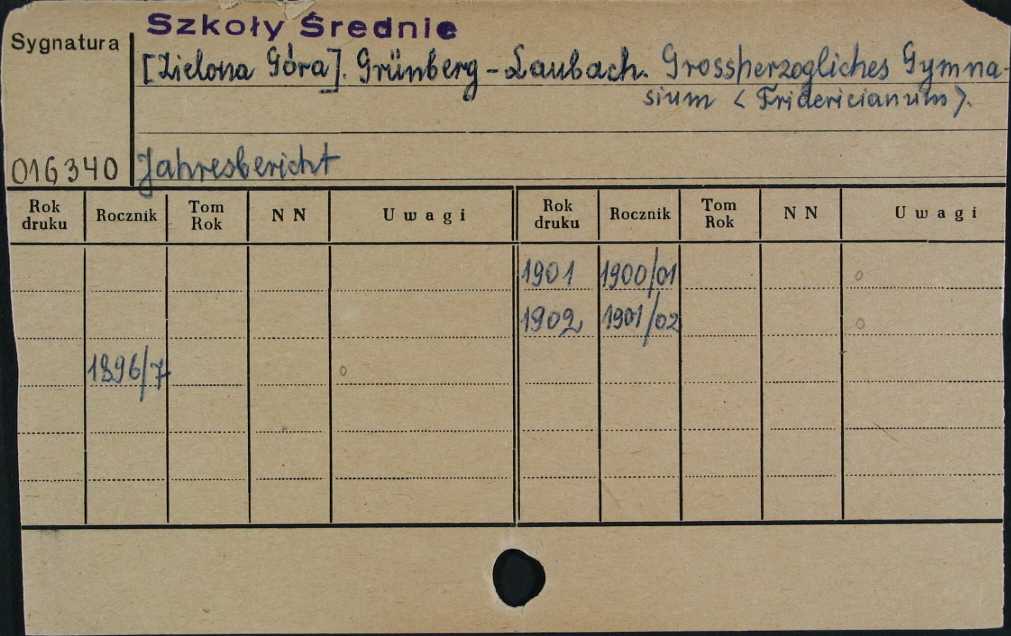 Szkoły Średnie
Sygnatura
[Zielona Góra]. Grünberg - Laubach. Grossherzogliches Gymna-
sium < Fridericianum >.
016340 Jahresbericht
Rok druku Rocznik Tom Rok N N Uwagi Rok druku Rocznik Tom Rok N N Uwagi
1901 1900/01 o
1902 1901/02 o
1896/7 o